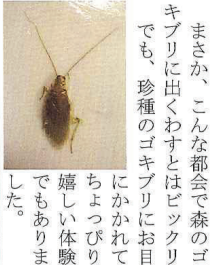 まさか、こんな都会で森のゴ
キブリに出くわすとはビックリ
でも、珍種のゴキブリにお目
にかかれて
ちょっぴり
嬉しい体験
でもありま
した。